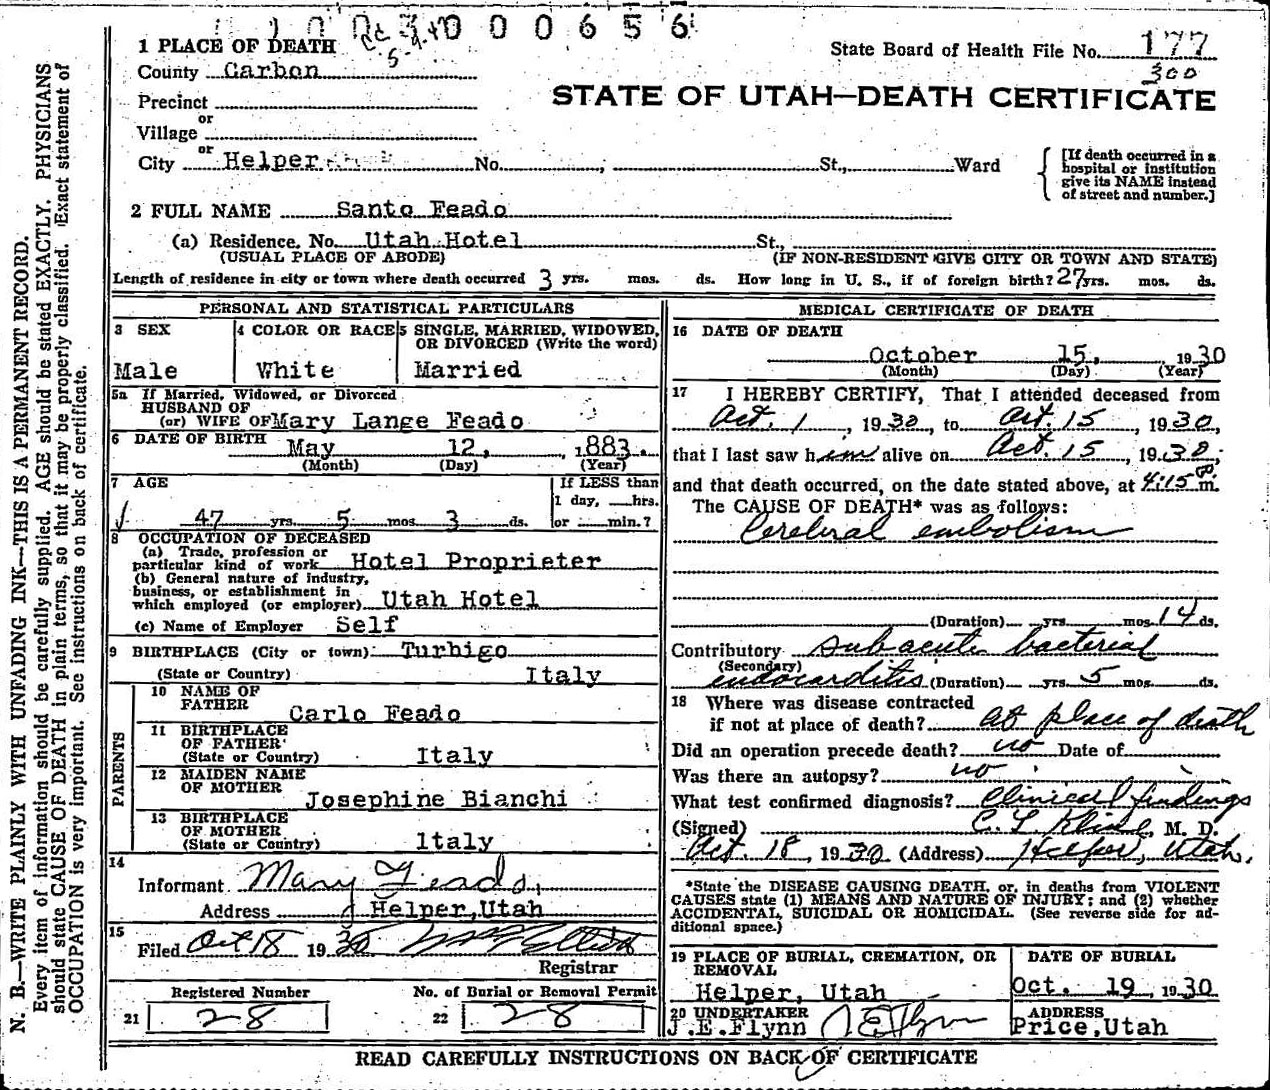 0 0 0 6 5 6
1 PLACE OF DEATH
State Board of Health File No. 177
County Carbon
300
STATE OF UTAH—DEATH CERTIFICATE
Precinct
or
Village
or
City Helper No. , St., Ward
[If death occurred in a
hospital or institution
give its NAME instead
of street and number.]
2 FULL NAME Santo Feado
(a) Residence. No. Utah Hotel St.,
(USUAL PLACE OF ABODE) (IF NON-RESIDENT GIVE CITY OR TOWN AND STATE)
Length of residence in city or town where death occurred 3 yrs. mos. ds. How long in U. S., if of foreign birth? 27 yrs. mos. ds.
PERSONAL AND STATISTICAL PARTICULARS
3 SEX
Male
4 COLOR OR RACE
White
5 SINGLE, MARRIED, WIDOWED,
OR DIVORCED (Write the word)
Married
5a If Married, Widowed, or Divorced
HUSBAND OF
(or) WIFE OF Mary Lange Feado
6 DATE OF BIRTH May 12, , 1883.
(Month) (Day) (Year)
7 AGE
If LESS than
1 day, hrs.
47 yrs. 5 mos. 3 ds. or min.?
8 OCCUPATION OF DECEASED
(a) Trade, profession or
particular kind of work Hotel Proprieter
(b) General nature of industry,
business, or establishment in
which employed (or employer) Utah Hotel
(c) Name of Employer Self
9 BIRTHPLACE (City or town) Turbigo
(State or Country) Italy
PARENTS
10 NAME OF
FATHER
Carlo Feado
11 BIRTHPLACE
OF FATHER
(State or Country) Italy
12 MAIDEN NAME
OF MOTHER
Josephine Bianchi
13 BIRTHPLACE
OF MOTHER
(State or Country) Italy
14
Informant Mary Feado,
Address Helper,Utah
15
Filed Oct 18 1930
Registrar
Registered Number
21 28
No. of Burial or Removal Permit
22 28
MEDICAL CERTIFICATE OF DEATH
16 DATE OF DEATH
October 15, , 1930
(Month) (Day) (Year)
17 I HEREBY CERTIFY, That I attended deceased from
Oct. 1 , 1930, to Oct. 15 , 1930,
that I last saw him alive on Oct. 15 , 1930,
and that death occurred, on the date stated above, at 4:15 P m.
The CAUSE OF DEATH* was as follows:
Cerebral embolism
(Duration) yrs. mos. 14 ds.
Contributory subacute bacterial
(Secondary)
endocarditis (Duration) yrs. 5 mos. ds.
18 Where was disease contracted
if not at place of death? at place of death
Did an operation precede death? no Date of
Was there an autopsy? no
What test confirmed diagnosis? Clinical findings
(Signed) C. L. Kline, M. D.
Oct. 18, 1930 (Address) Helper, Utah.
*State the DISEASE CAUSING DEATH, or, in deaths from VIOLENT
CAUSES state (1) MEANS AND NATURE OF INJURY; and (2) whether
ACCIDENTAL, SUICIDAL OR HOMICIDAL. (See reverse side for ad-
ditional space.)
19 PLACE OF BURIAL, CREMATION, OR
REMOVAL
Helper, Utah
DATE OF BURIAL
Oct. 19, 1930
20 UNDERTAKER
J.E.Flynn J E Flynn
ADDRESS
Price,Utah
READ CAREFULLY INSTRUCTIONS ON BACK OF CERTIFICATE
N. B.—WRITE PLAINLY WITH UNFADING INK—THIS IS A PERMANENT RECORD.
Every item of information should be carefully supplied. AGE should be stated EXACTLY. PHYSICIANS
should state CAUSE OF DEATH in plain terms, so that it may be properly classified. Exact statement of
OCCUPATION is very important. See instructions on back of certificate.